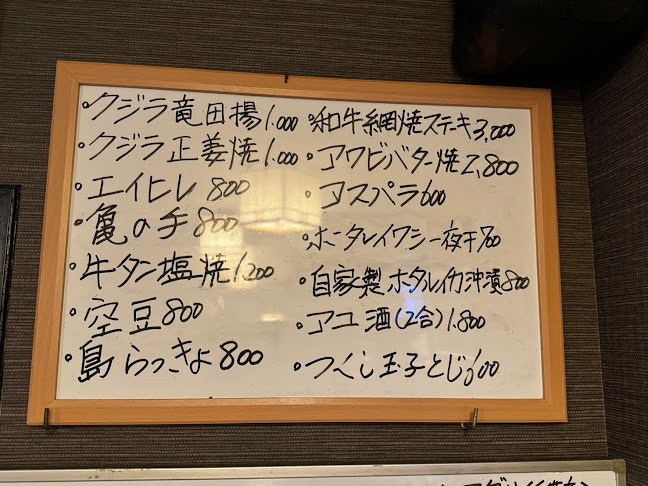 ・クジラ竜田揚1.000
・クジラ正姜焼1.000
・エイヒレ 800
・亀の手 800
・牛タン塩焼1.200
・空豆800
・島らっきょ800
・和牛網焼ステキ3,000
・アワビバター焼2,800
・アスパラ600
・ホータレイワシ一夜干700
・自家製ホタルイカ沖漬800
・アユ酒(2合)1.800
・つくし玉子とじ600